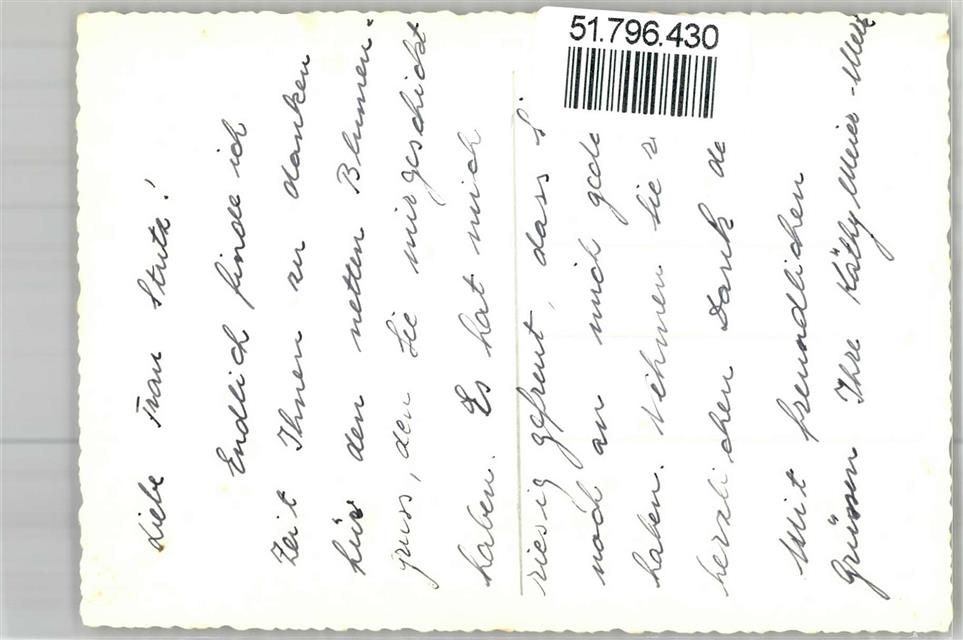 Liebe Frau Stutz!
Endlich finde ich
Zeit Ihnen zu danken
für den netten Blumen-
gruss, den Sie mir geschickt
haben. Es hat mich
riesig gefreut, dass S
noch an mich gede
haben. Nehmen Sie
herzlichen Dank de
Mit freundlichen
Grüssen Ihre Käthy Meier-
51.796.430